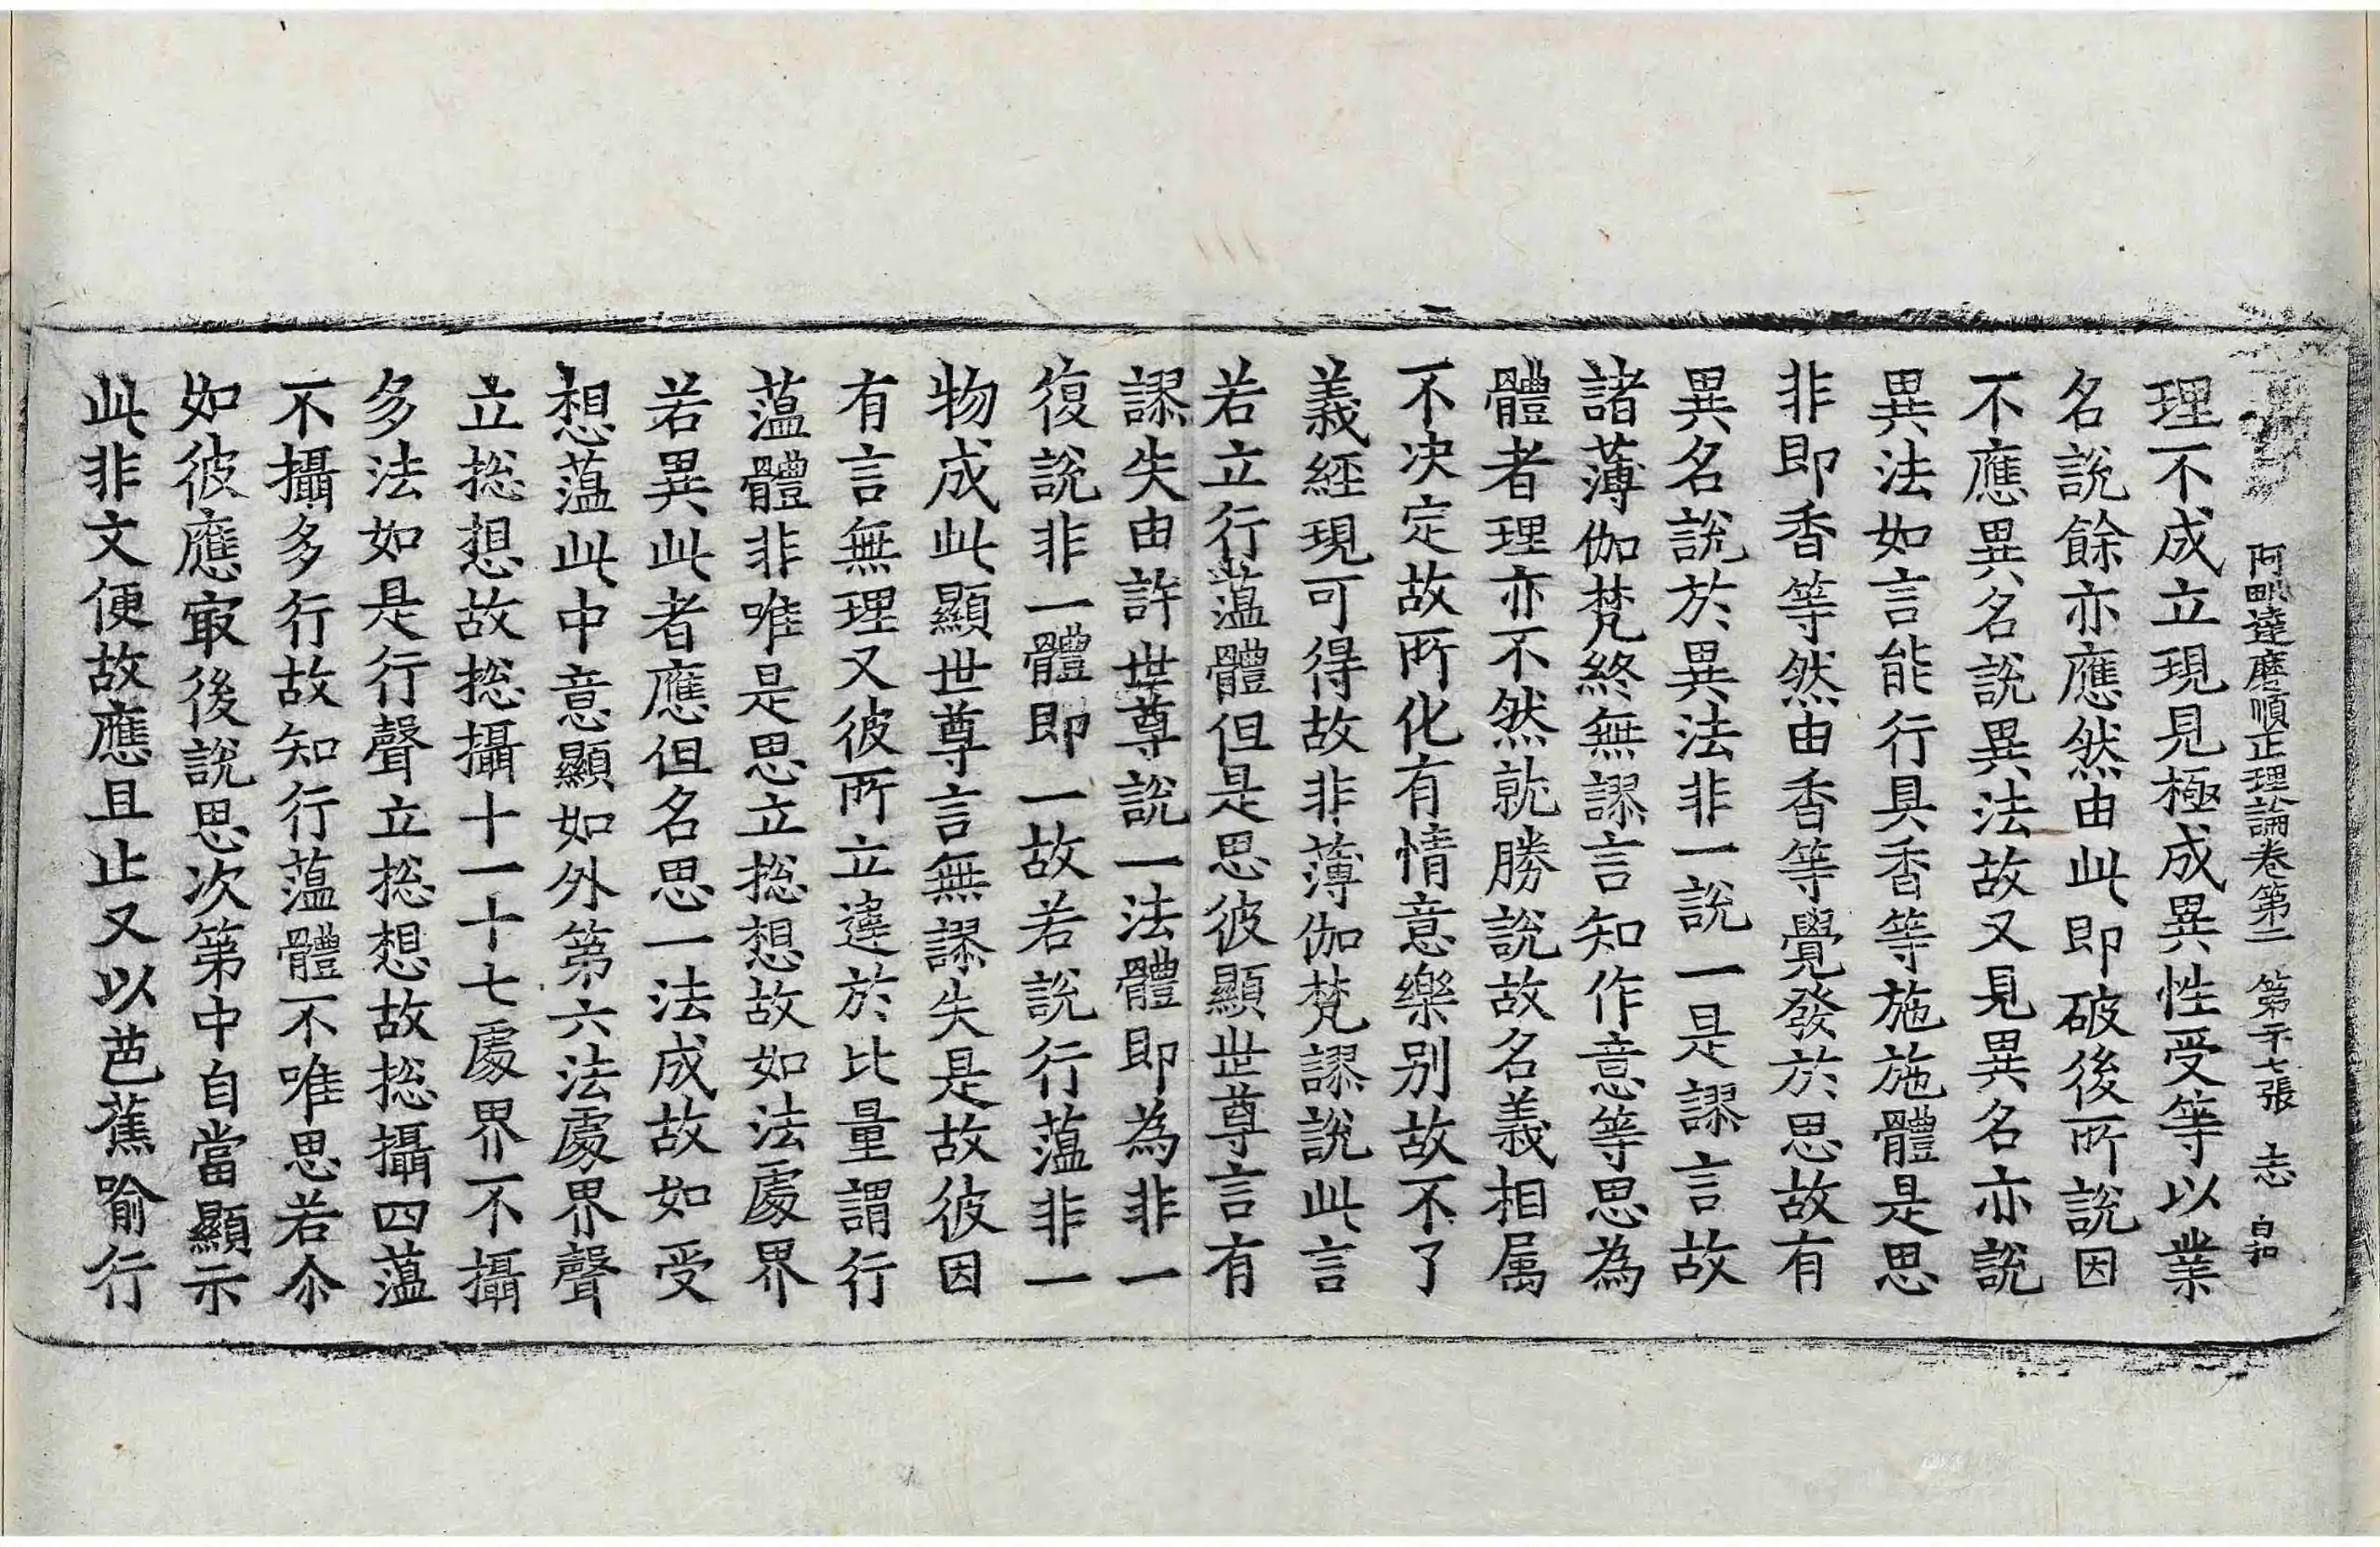 阿毗達磨順正理論卷第二 第十七張 志 白和
理不成立現見極成異性受等以業
名說餘亦應然由此即破後所說因
不應異名說異法故又見異名亦說
異法如言能行具香等施施體是思
非即香等然由香等覺發於思故有
異名說於異法非一說一是謬言故
諸薄伽梵終無謬言知作意等思為
體者理亦不然就勝說故名義相属
不決定故所化有情意樂别故不了
義經現可得故非薄伽梵謬說此言
若立行薀體但是思彼顯世尊言有
謬失由許世尊說一法體即為非一
復說非一體即一故若說行薀非一
物成此顯世尊言無謬失是故彼因
有言無理又彼所立違於比量謂行
薀體非唯是思立揔想故如法處界
若異此者應但名思一法成故如受
想薀此中意顯如外第六法處界聲
立揔想故揔攝十一十七處界不攝
多法如是行聲立揔想故揔攝四薀
不攝多行故知行薀體不唯思若尒
如彼應㝡後說思次第中自當顯示
此非文便故應且止又以芭蕉喻行